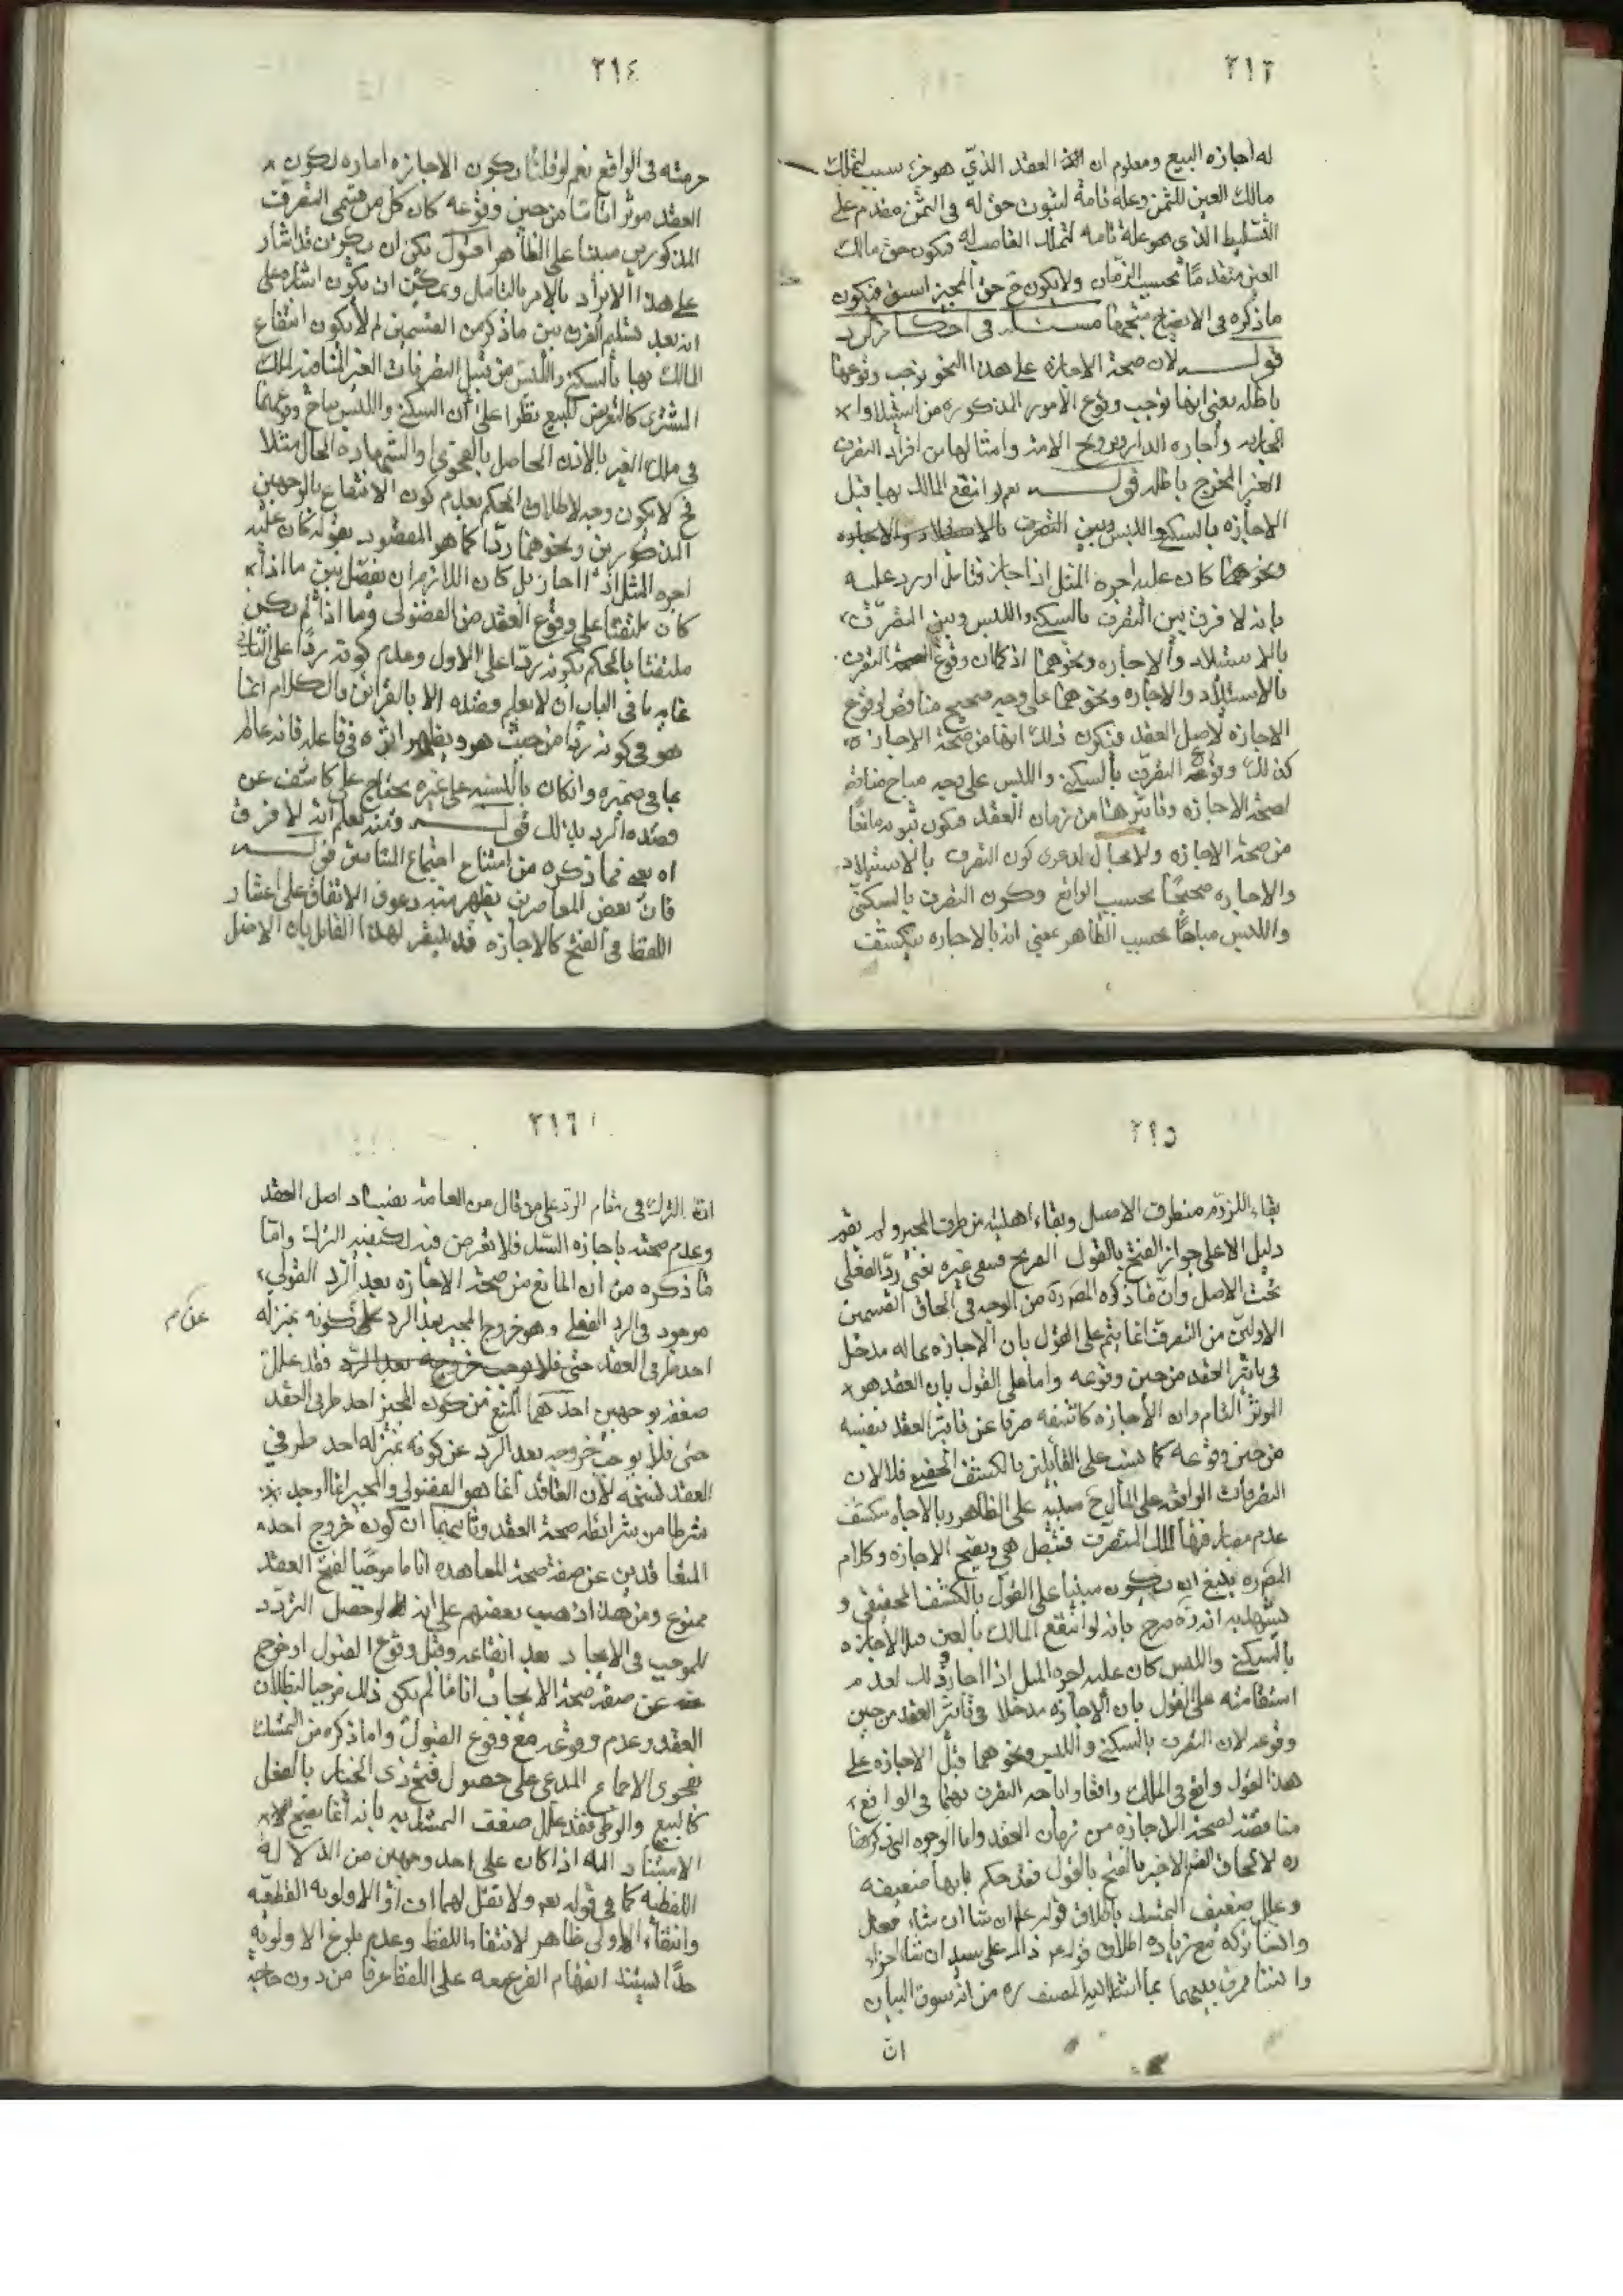 ٢١٣
له اجازه البيع ومعلوم ان العقد الذي هو جزء سبب لتملك
مالك العين للثمن وعلة تامة لثبوت حق له في الثمن مقدم على
التسليط الذي هو علة تامه لتملك الغاصب له فيكون حق مالك
العين متقدمًا بحسب الزمان ولا يكون ح حق المجيز اسبق فيكون
ما ذكره في الايضاح متجها مسئله في احكام الرد
قوله لان صحة الاجازه على هذا النحو توجب وقوعها
باطله يعني انها توجب وقوع الأمور المذكوره من استيلاد
الجاريه واجاره الدار وتزويج الامة وامثالها من افراد التصرف
الغير المخرج باطله قوله نعم لو انتفع المالك بها قبل
الاجازه بالسكنى واللبس وبين التصرف بالاستيلاد والاجاره
ونحوهما كان عليه اجره المثل اذا اجاز فتامل اورد عليه
بانه لا فرق بين التصرف بالسكنى واللبس وبين التصرف
بالاستيلاد والاجاره ونحوهما اذ كما ان وقوع التصرف
بالاستيلاد والاجاره ونحوهما على وجه صحيح مناقض لوقوع
الاجازه لاصل العقد فيكون ذلك مانعا من صحة الاجازه
كذلك وقوع التصرف بالسكنى واللبس على وجه مباح مناقض
لصحة الاجازه وتاثيرها من زمان العقد فيكون ثبوته مانعًا
من صحة الاجازه ولا مجال لدعوى كون التصرف بالاستيلاد
والاجاره صحيحًا بحسب الواقع وكون التصرف بالسكنى
واللبس مباحًا بحسب الظاهر بمعنى انه بالاجازه ينكشف
٢١٤
حرمته في الواقع نعم لو قلنا بكون الاجازه اماره لكون
العقد موثرا تامّا من حين وقوعه كان كل من قسمي التصرف
المذكورين مبنيا على الظاهر اقول يمكن ان يكون قد اشار
على هذا الايراد بالامر بالتامل ويمكن ان يكون اشاره الى
انه بعد تسليم الفرق بين ما ذكر من القسمين لم لا يكون انتفاع
المالك بها بالسكنى واللبس من قبيل التصرفات الغير المنافيه لملك
المشتري كالتعريض للبيع نظرا على ان السكنى واللبس مباح وقوعهما
في ملك الغير بالاذن الحاصل بالفحوى او الشهاده الحال مثلا
فح لا يكون وجه لاطلاق الحكم بعدم كون الانتفاع بالوجهين
المذكورين ونحوهما ردّا كما هو المقصود بقوله كان عليه
اجره المثل اذا اجاز بل كان اللازم ان يفصل بين ما اذا
كان ملتفتا على وقوع العقد من الفضولي وما اذا لم يكن
ملتفتا بالحكم بكونه ردّا على الاول وعدم كونه ردًا على الثاني
غايه ما في الباب ان لا يعلم قصده الا بالقرائن والكلام انما
هو في كونه ردّا من حيث هو ويظهر اثره في فاعله فانه عالم
بما في ضميره وان كان بالنسبه على غيره يحتاج على كاشف عن
قصده الرد بذلك قوله ومنه يعلم انه لا فرق
اه يعني فيما ذكره من امتناع اجتماع المتنافيين قوله
فان بعض المعاصرين يظهر منه دعوى الاتفاق على اعتبار
اللفظ في الفسخ كالاجازه قد ينتصر لهذا القائل بان الاصل
٢١٥
بقاء اللزوم من طرف الاصيل وبقاء اهليته من طرف المجيز ولم يقم
دليل الا على جواز الفسخ بالقول الصريح فبقى غيره يعني ردّ الفعلي
تحت الاصل وان ما ذكره المصره من الوجه في الحاق القسمين
الاولين من التصرف انما يتم على القول بان الاجازه مما له مدخل
في تاثير العقد من حين وقوعه واما على القول بان العقد هو
الموثر التام وان الأجازه كاشفه صرفا عن تاثير العقد بنفسه
من حين وقوعه كما نسب على القائلين بالكشف الحقيقي فلا لان
التصرفات الواقعه على المال ح مبنيه على الظاهر وبالاجازه ينكشف
عدم مصادفتها لملك المتصرف فتبطل هي وتصح الاجازه وكلام
المصره ينبغي ان يكون مبنيا على القول بالكشف الحقيقي و
يشهد به انه ره صرح بانه لو انتفع المالك بالعين قبل الاجازه
بالسكنى واللبس كان عليه اجره المثل اذا اجاز وذلك لعدم
استقامته على القول بان الاجازه مدخلا في تاثير العقد من حين
وقوعه لان التصرف بالسكنى واللبس ونحوهما قبل الاجازه على
هذا القول واقع في الملك واقعا واباحه التصرف بهما في الواقع
مناقضه لصحة الاجازه من زمان العقد واما الوجوه التي ذكرها
ره لالحاق القسم الاخير بالفسخ بالقول فقد حكم بانها ضعيفه
وعلل ضعف التمسك باطلاق قوله ع ان شاء فعل
وان شاء تركه مع زياده اطلاق قوله ع ذاك على سيده ان شاء اجاز
وان شاء فرق بينهما بما اشار اليه المصنف ره من انه سوق البيان
ان
٢١٦
ان الترك في مقام الردّ على من قال من العامة بفساد اصل العقد
وعدم صحته باجازه السيد فلا تعرض فيه لكيفيه الترك وامّا
ما ذكره من ان المانع من صحة الاجازه بعد الرد القولي
موجود في الرد الفعلي وهو خروج المجيز بعد الرد عن كونه بمنزله
عن م
احد طرفي العقد حتى فلا يوجب خروجه بعد الرد فقد علل
ضعفه بوجهين احدهما المنع من كون المجيز احد طرفي العقد
حتى فلا يوجب خروجه بعد الرّد عن كونه بمنزله احد طرفي
العقد فسخه لان العاقد انما هو الفضولي والمجيز انما اوجد
شرطا من شرائط صحة العقد وثانيهما ان كون خروج احد
المتعاقدين عن صفة صحة المعاهده انا ما موجبًا لفسخ العقد
ممنوع ومن هنا ذهب بعضهم على انه لو حصل التردّد
للموجب في الايجاد بعد ايقاعه وقبل وقوع القبول او خرج
عن صفة صحة الايجاب اناما لم يكن ذلك موجبا لبطلان
العقد وعدم وقوعه مع وقوع القبول واما ذكره من التمسك
بفحوى الاجماع المدعى على حصول فسخ ذي الخيار بالفعل
كالبيع والوطي فقد علل ضعف التمسك به بانه انما يصح
الاستناد اليه اذا كان على احد وجهين من الدلالة
اللفظيه كما في قوله تعم ولا تقل لهما اف او الاولويه القطعيّه
وانتفاء الاولى ظاهر لانتفاء اللفظ وعدم بلوغ الاولويه
حدّا يستند انفهام الفرع معه على اللفظ عرفا من دون حاجة